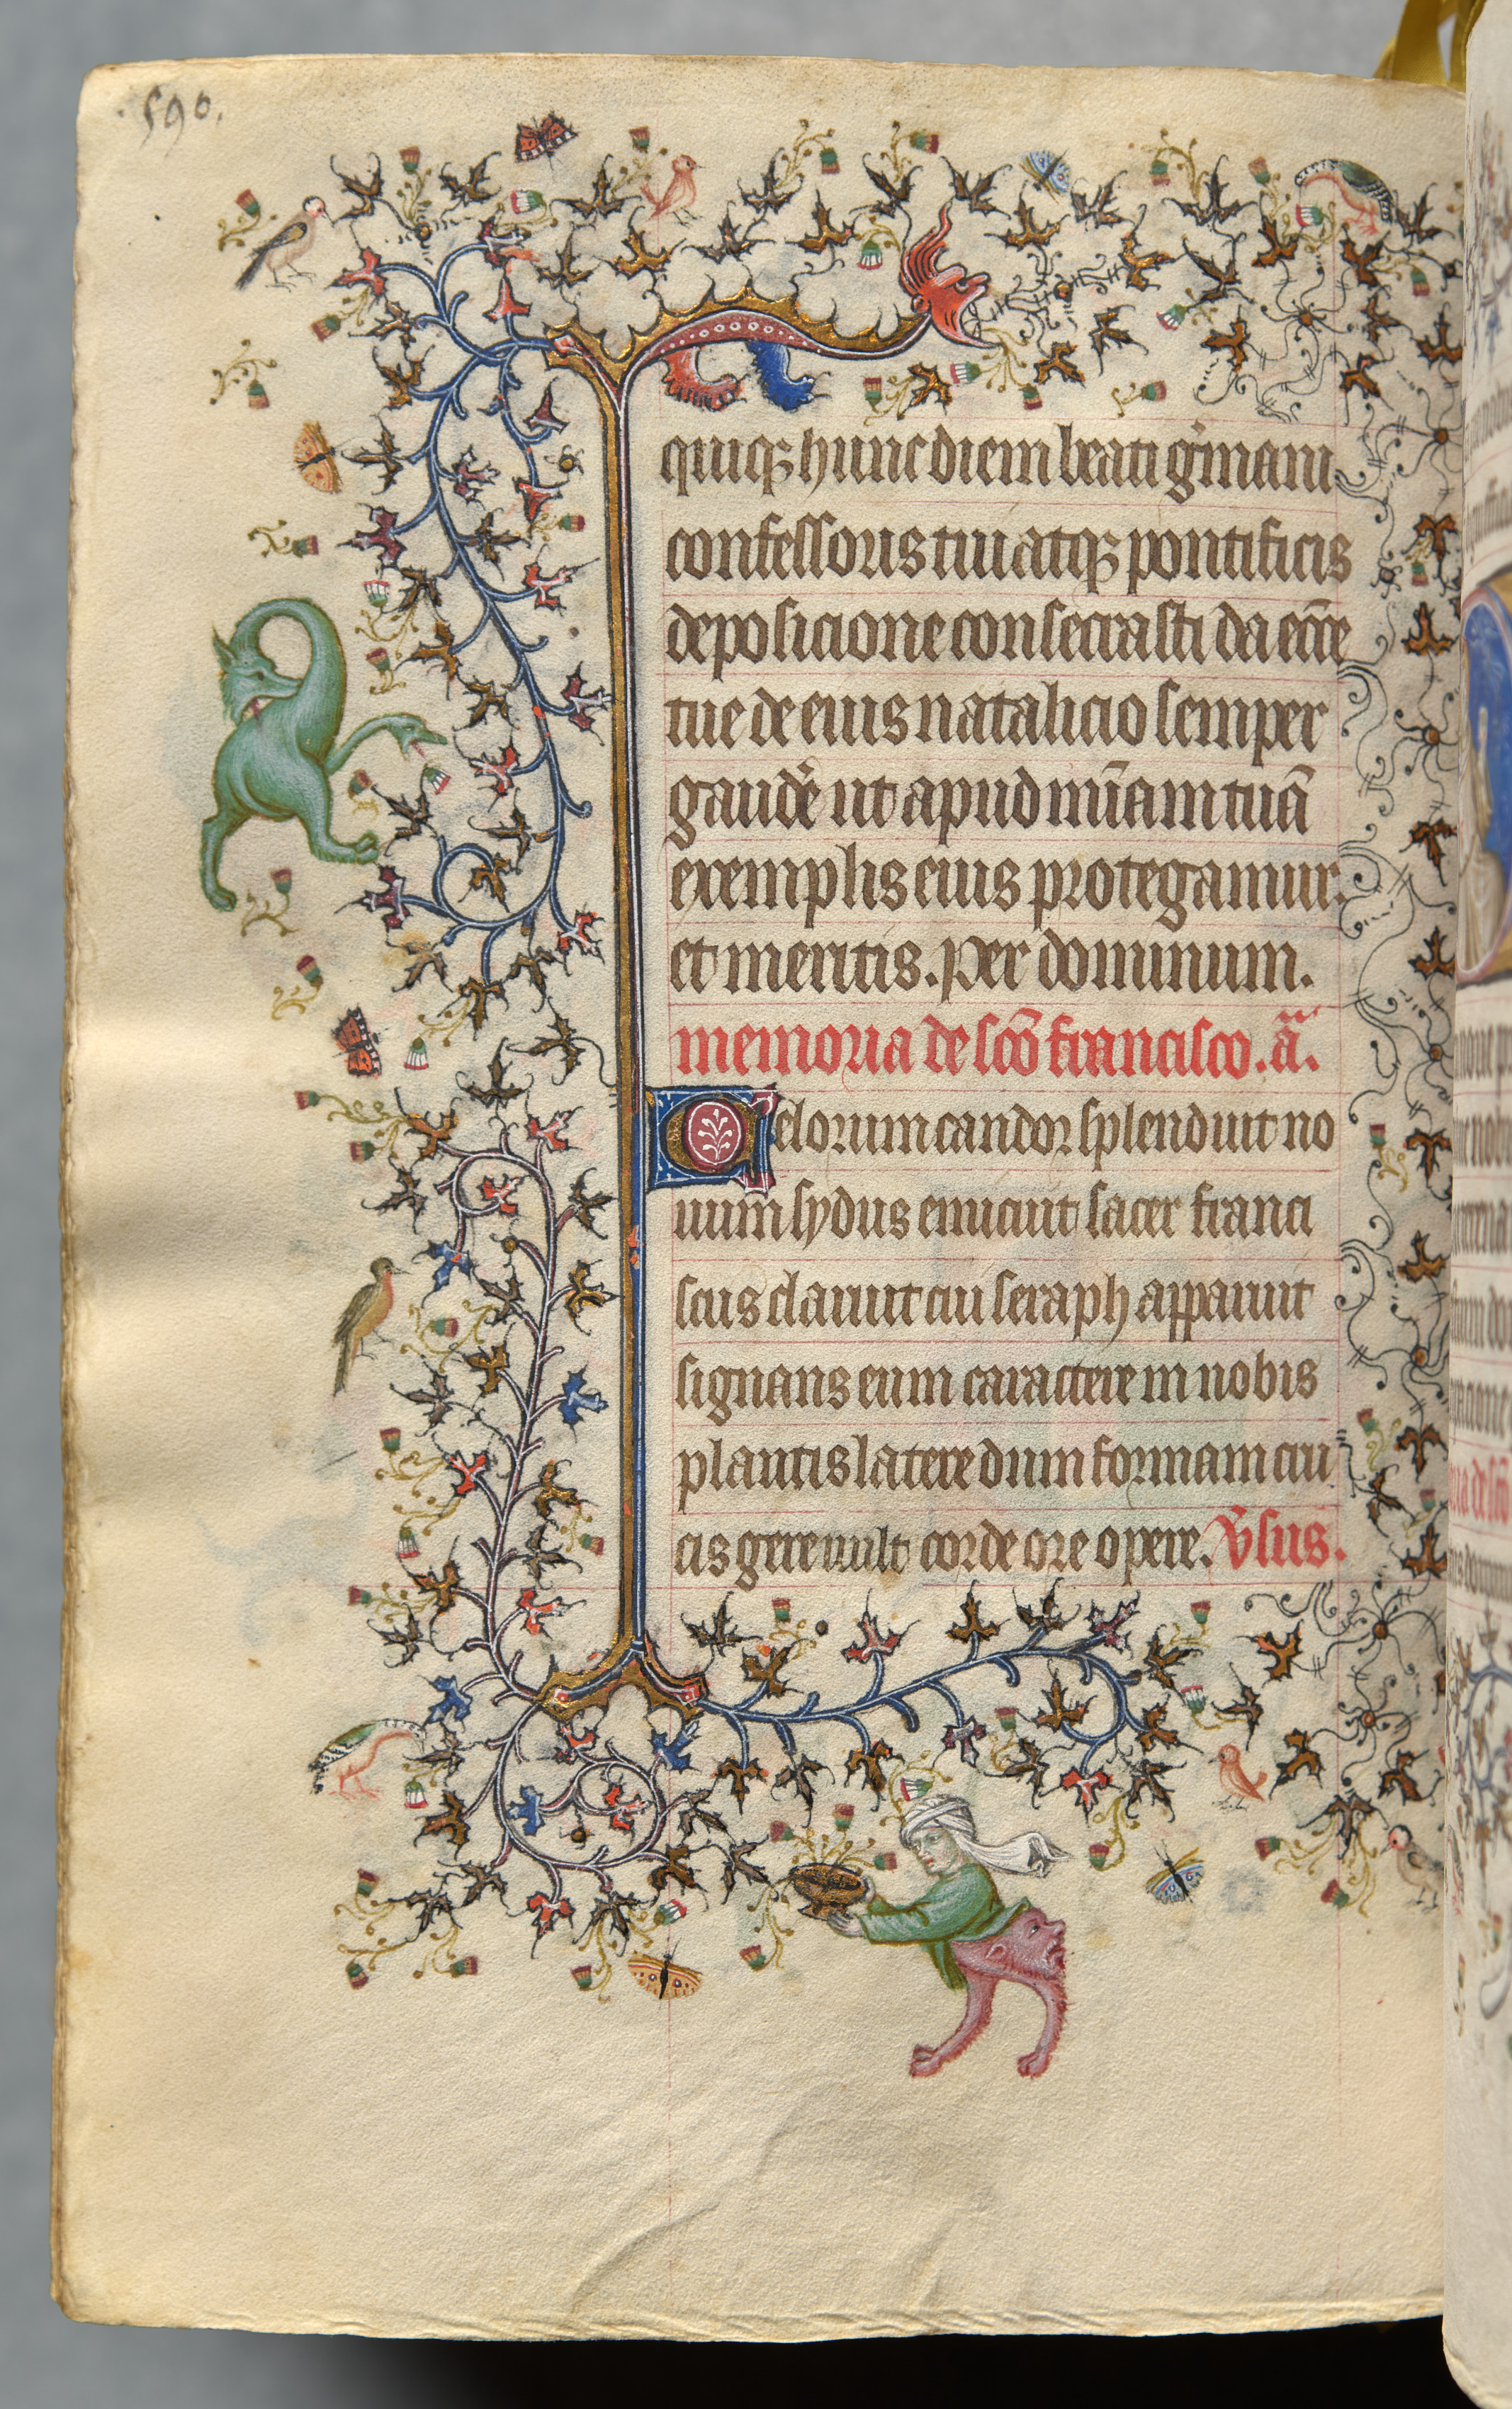 590.
quiqꝫ hunc diem beati g̾mani
confessoris tui atqꝫ pontificis
deposicione consecrasti da eccͤe
tue de eius natalicio semper
gaude᷑ ut apud mīam tuā
exemplis eius protegamur.
et meritis. Per dominum.
memoria de sc̄o francisco. aᷓ.
Celorum candor splenduit no
uum sydus emicuit sacer franci
scus claruit cui seraph apparuit
signans eum caractere in nobis
plantis latere dum formam cru
cis gere uult corde ore opere. v̾sus.